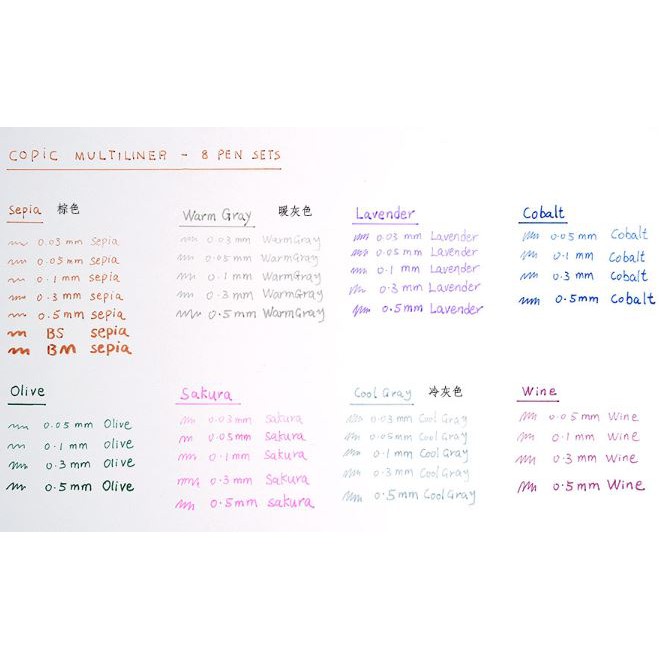 COPIC MULTILINER - 8 PEN SETS
Sepia 棕色
0.03 mm Sepia
0.05 mm Sepia
0.1 mm sepia
0.3 mm sepia
0.5 mm sepia
BS sepia
BM sepia
Warm Gray 暖灰色
0.03 mm WarmGray
0.05 mm WarmGray
0.1 mm WarmGray
0.3 mm WarmGray
0.5 mm WarmGray
Lavender
0.03 mm Lavender
0.05 mm Lavender
0.1 mm Lavender
0.3 mm Lavender
0.5 mm Lavender
Cobalt
0.05 mm Cobalt
0.1 mm Cobalt
0.3 mm Cobalt
0.5 mm Cobalt
Olive
0.05 mm Olive
0.1 mm Olive
0.3 mm Olive
0.5 mm Olive
Sakura
0.03 mm Sakura
0.05 mm Sakura
0.1 mm Sakura
0.3 mm Sakura
0.5 mm Sakura
Cool Gray 冷灰色
0.03 mm Cool Gray
0.05 mm Cool Gray
0.1 mm Cool Gray
0.3 mm Cool Gray
0.5 mm Cool Gray
Wine
0.05 mm Wine
0.1 mm Wine
0.3 mm Wine
0.5 mm Wine